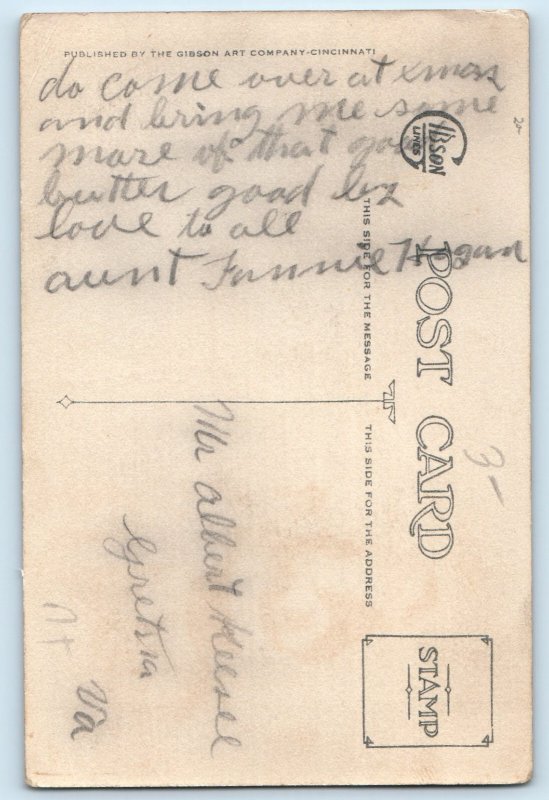 PUBLISHED BY THE GIBSON ART COMPANY-CINCINNATI
do come over at xmas
and bring me some
more of that good
butter good by
love to all
aunt Fannie Hogan
GIBSON
LINES
POST CARD
THIS SIDE FOR THE MESSAGE
THIS SIDE FOR THE ADDRESS
Mr Albert Keesel
Gretna
Va
STAMP
3-